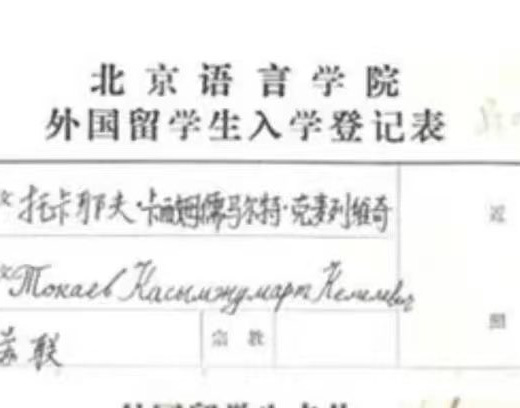 北京语言学院
外国留学生入学登记表
文 托卡耶夫·卡西姆儒马尔特·克麦列维奇
近
文 Токаев Касымжумарт Кемелевич
照
苏联 宗教